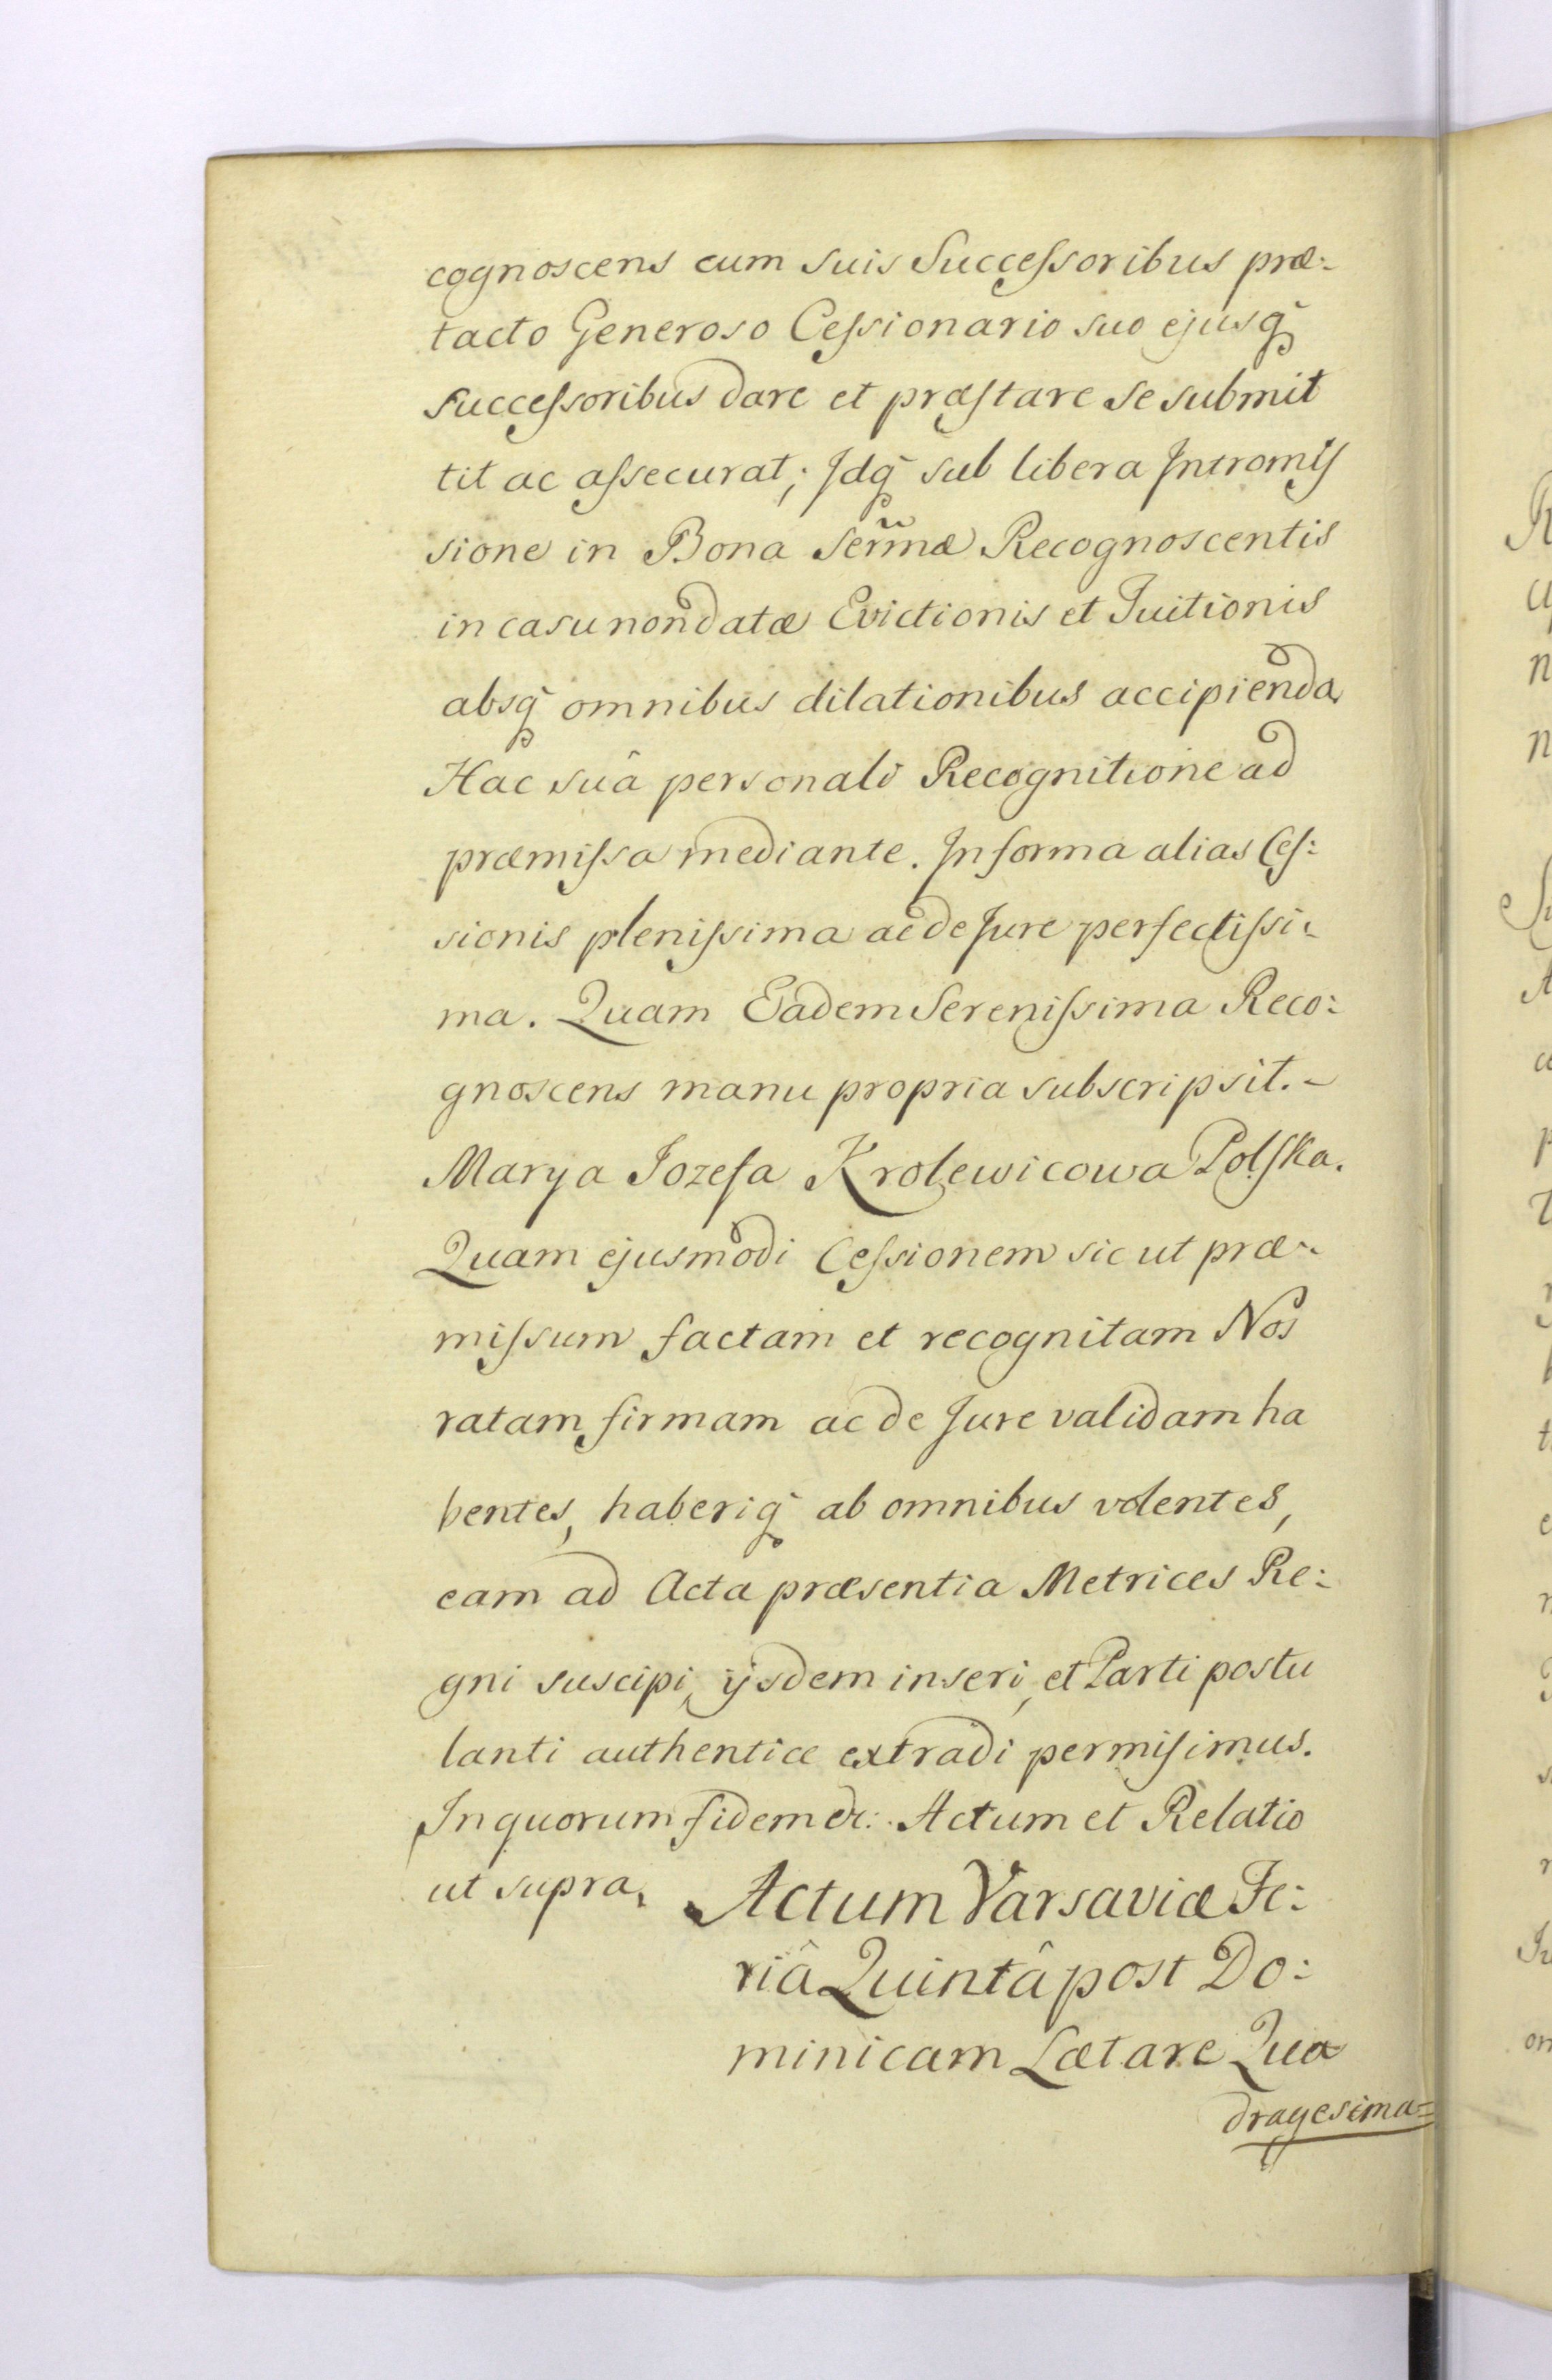 cognoscens cum suis Succeſsoribus præ:
tacto Generoso Ceſsionario suo ejusq̃
succeſsoribus dare et præſtare se submit
tit ac aſsecurat; Idq̃ sub libera Intromiſ
sione in Bona Serm̃æ Recognoscentis
in casu non datæ Evictionis et Tuitionis
absq̃ omnibus dilationibus accipienda
Hac suâ personali Recognitione ad
præmiſsa mediante. In forma alias Ceſ:
sionis pleniſsima ac de Jure perfectiſsi:
ma. Quam Eadem Sereniſsima Reco:
gnoscens manu propria subscripsit. -
Marya Jozefa Krolewicowa Polſka.
Quam ejusmodi Ceſsionem sic ut præ:
miſsum factam et recognitam Nos
ratam, firmam ac de Jure validam ha
bentes, haberiq̃ ab omnibus volentes,
eam ad Acta præsentia Metrices Re:
gni suscipi, ijsdem inseri, et Parti postu
lanti authentice extradi permiſimus.
In quorum fidem &c: Actum et Relatio
ut supra,
Actum Varsaviæ Fe:
riâ Quintâ post Do:
minicam Lætare Qua
dragesima=